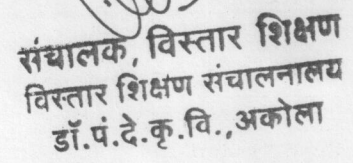 संचालक, विस्तार शिक्षण
विस्तार शिक्षण संचालनालय
डॉ.पं.दे.कृ.वि.,अकोला